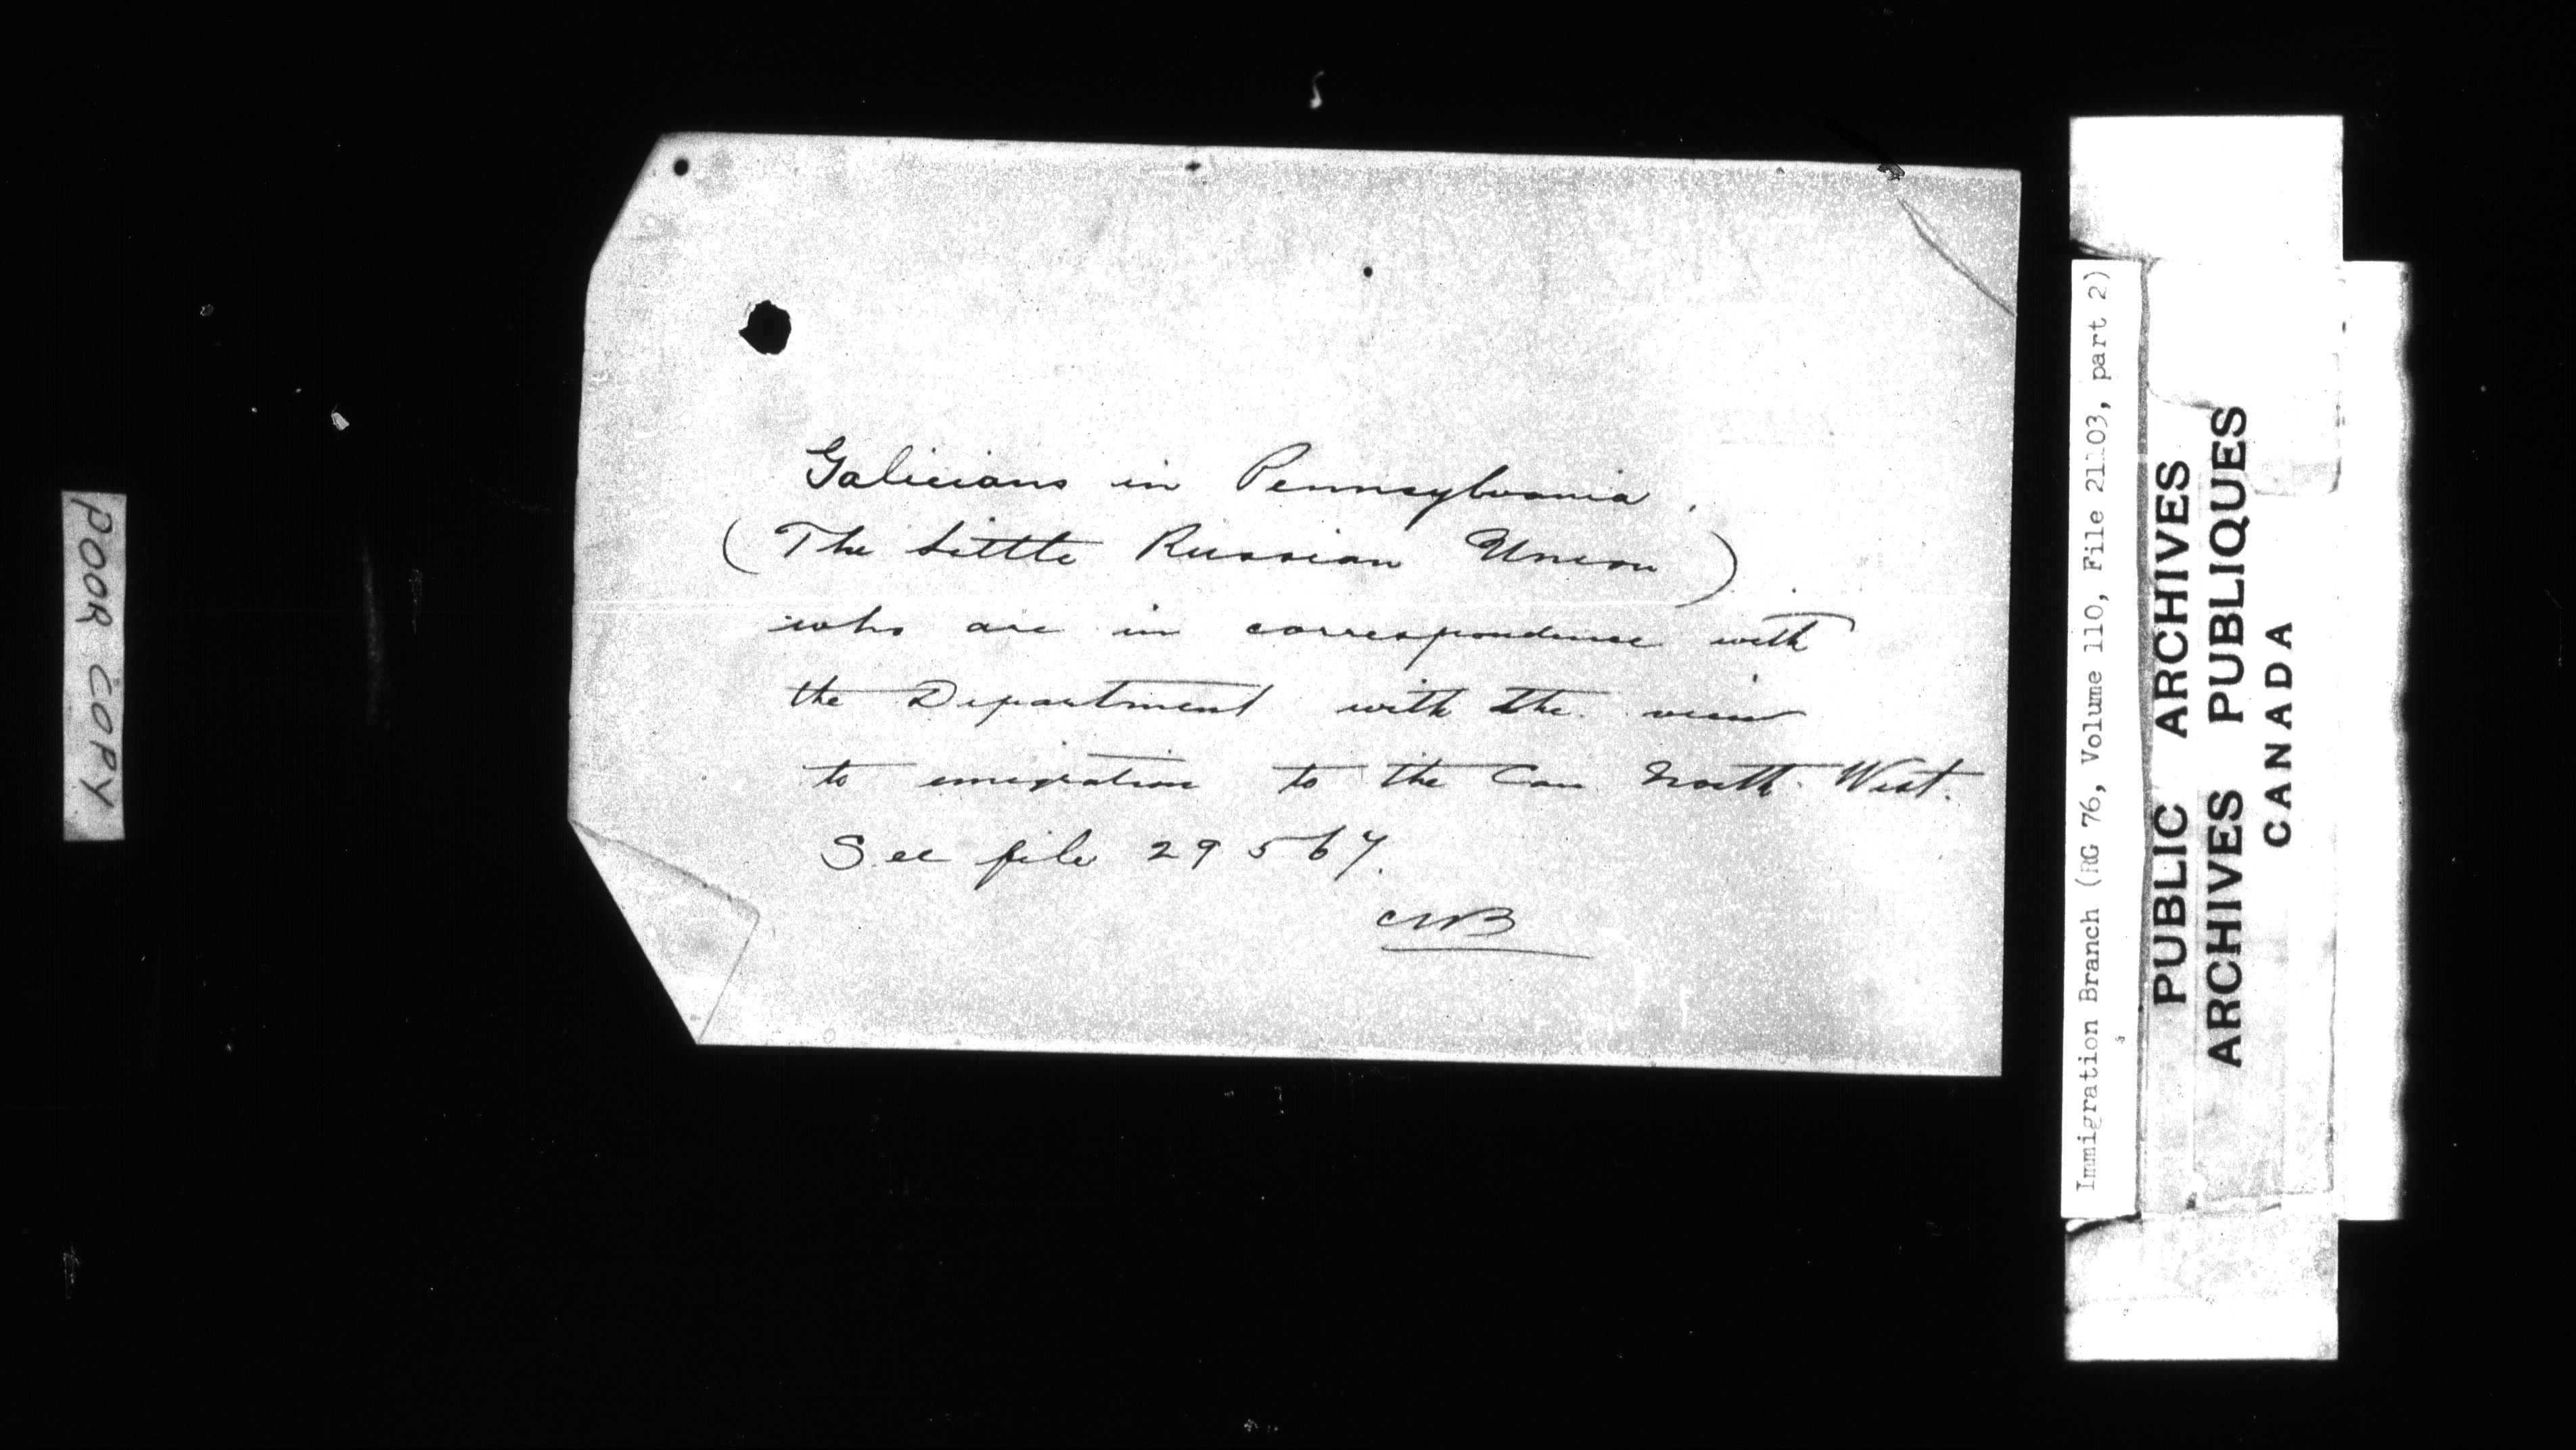 POOR COPY
Galicians in Pennsylvania.
(The Little Russian Union)
who are in correspondence with
the Department with the view
to emigration to the Can North West.
See file 29567.
CWB
Immigration Branch (RG 76, Volume 110, File 21103, part 2)
PUBLIC ARCHIVES
ARCHIVES PUBLIQUES
CANADA